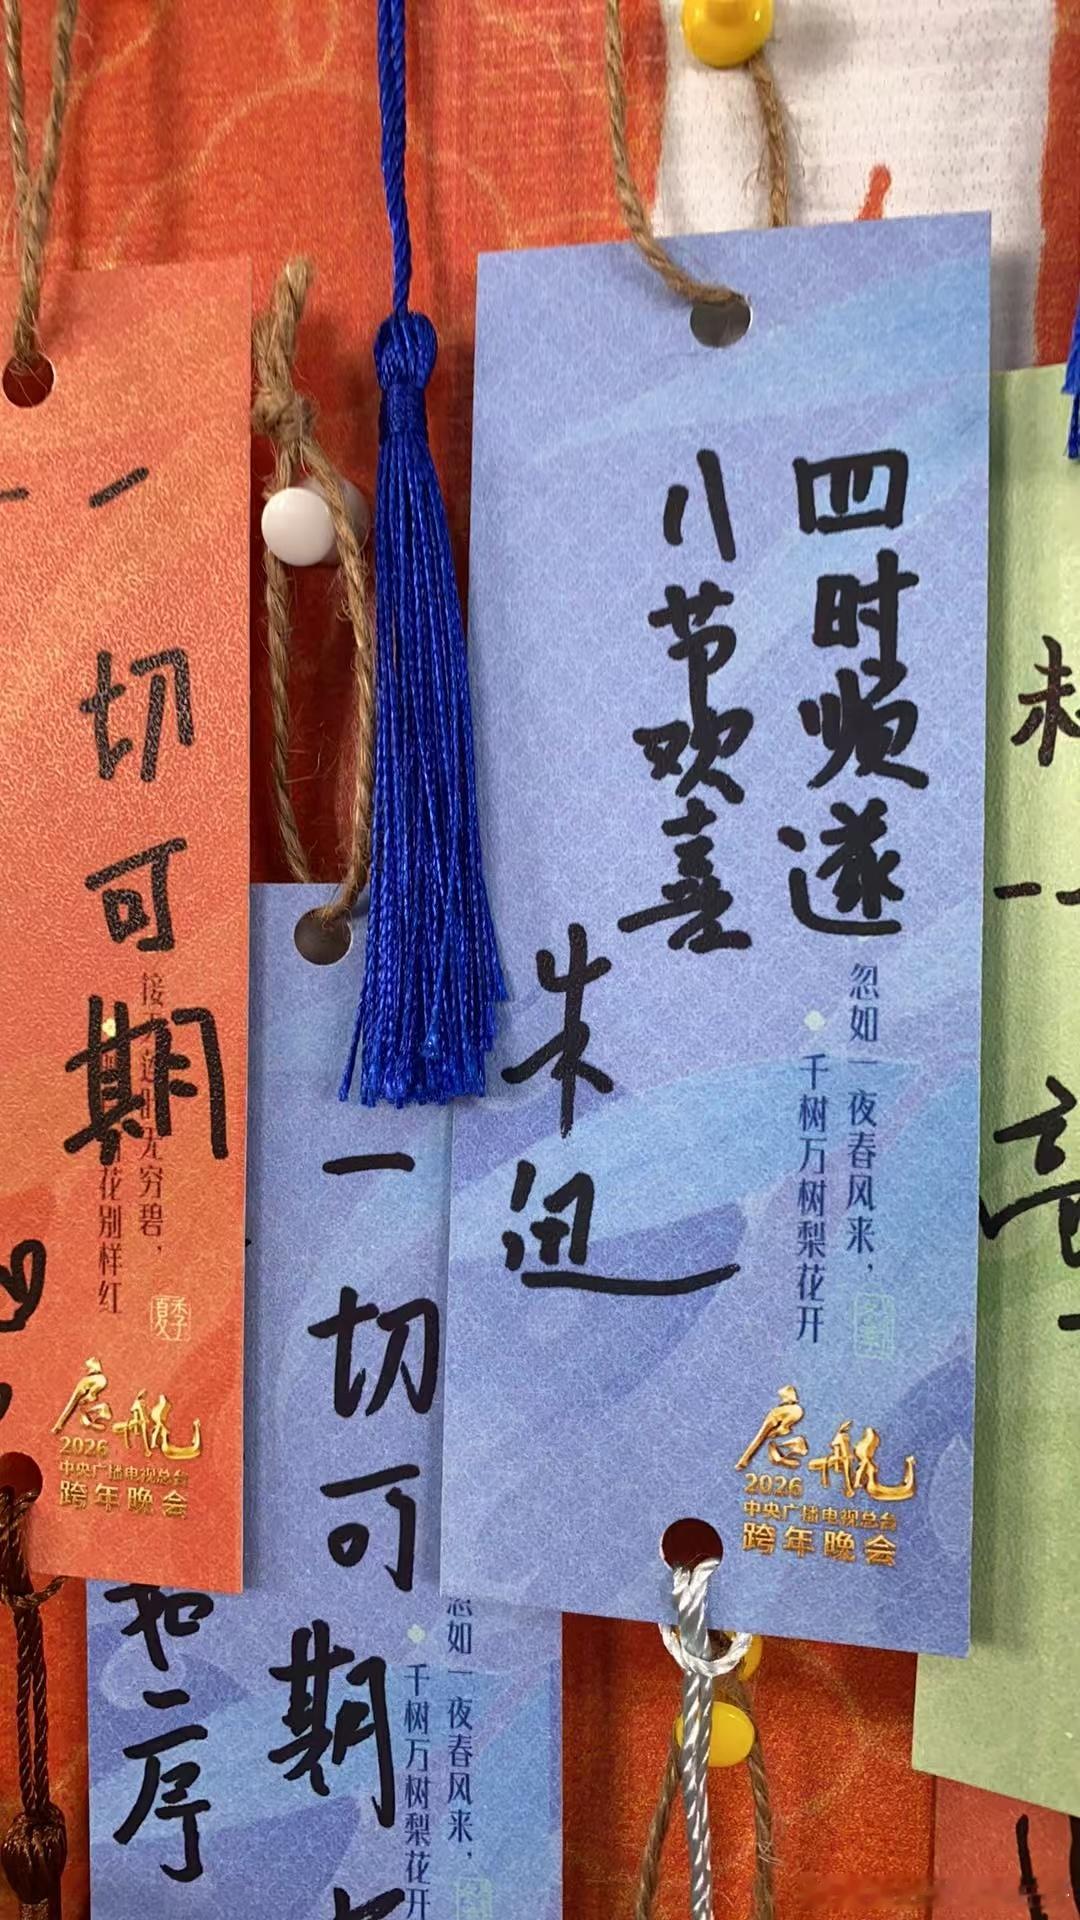 四时顺遂
八节欢喜
朱迅
忽如一夜春风来，
千树万树梨花开
启航
2026
中央广播电视总台
跨年晚会
一切可期
无穷碧，
花别样红
夏季
启航
2026
中央广播电视总台
跨年晚会
一切可期
忽如一夜春风来，
千树万树梨花开